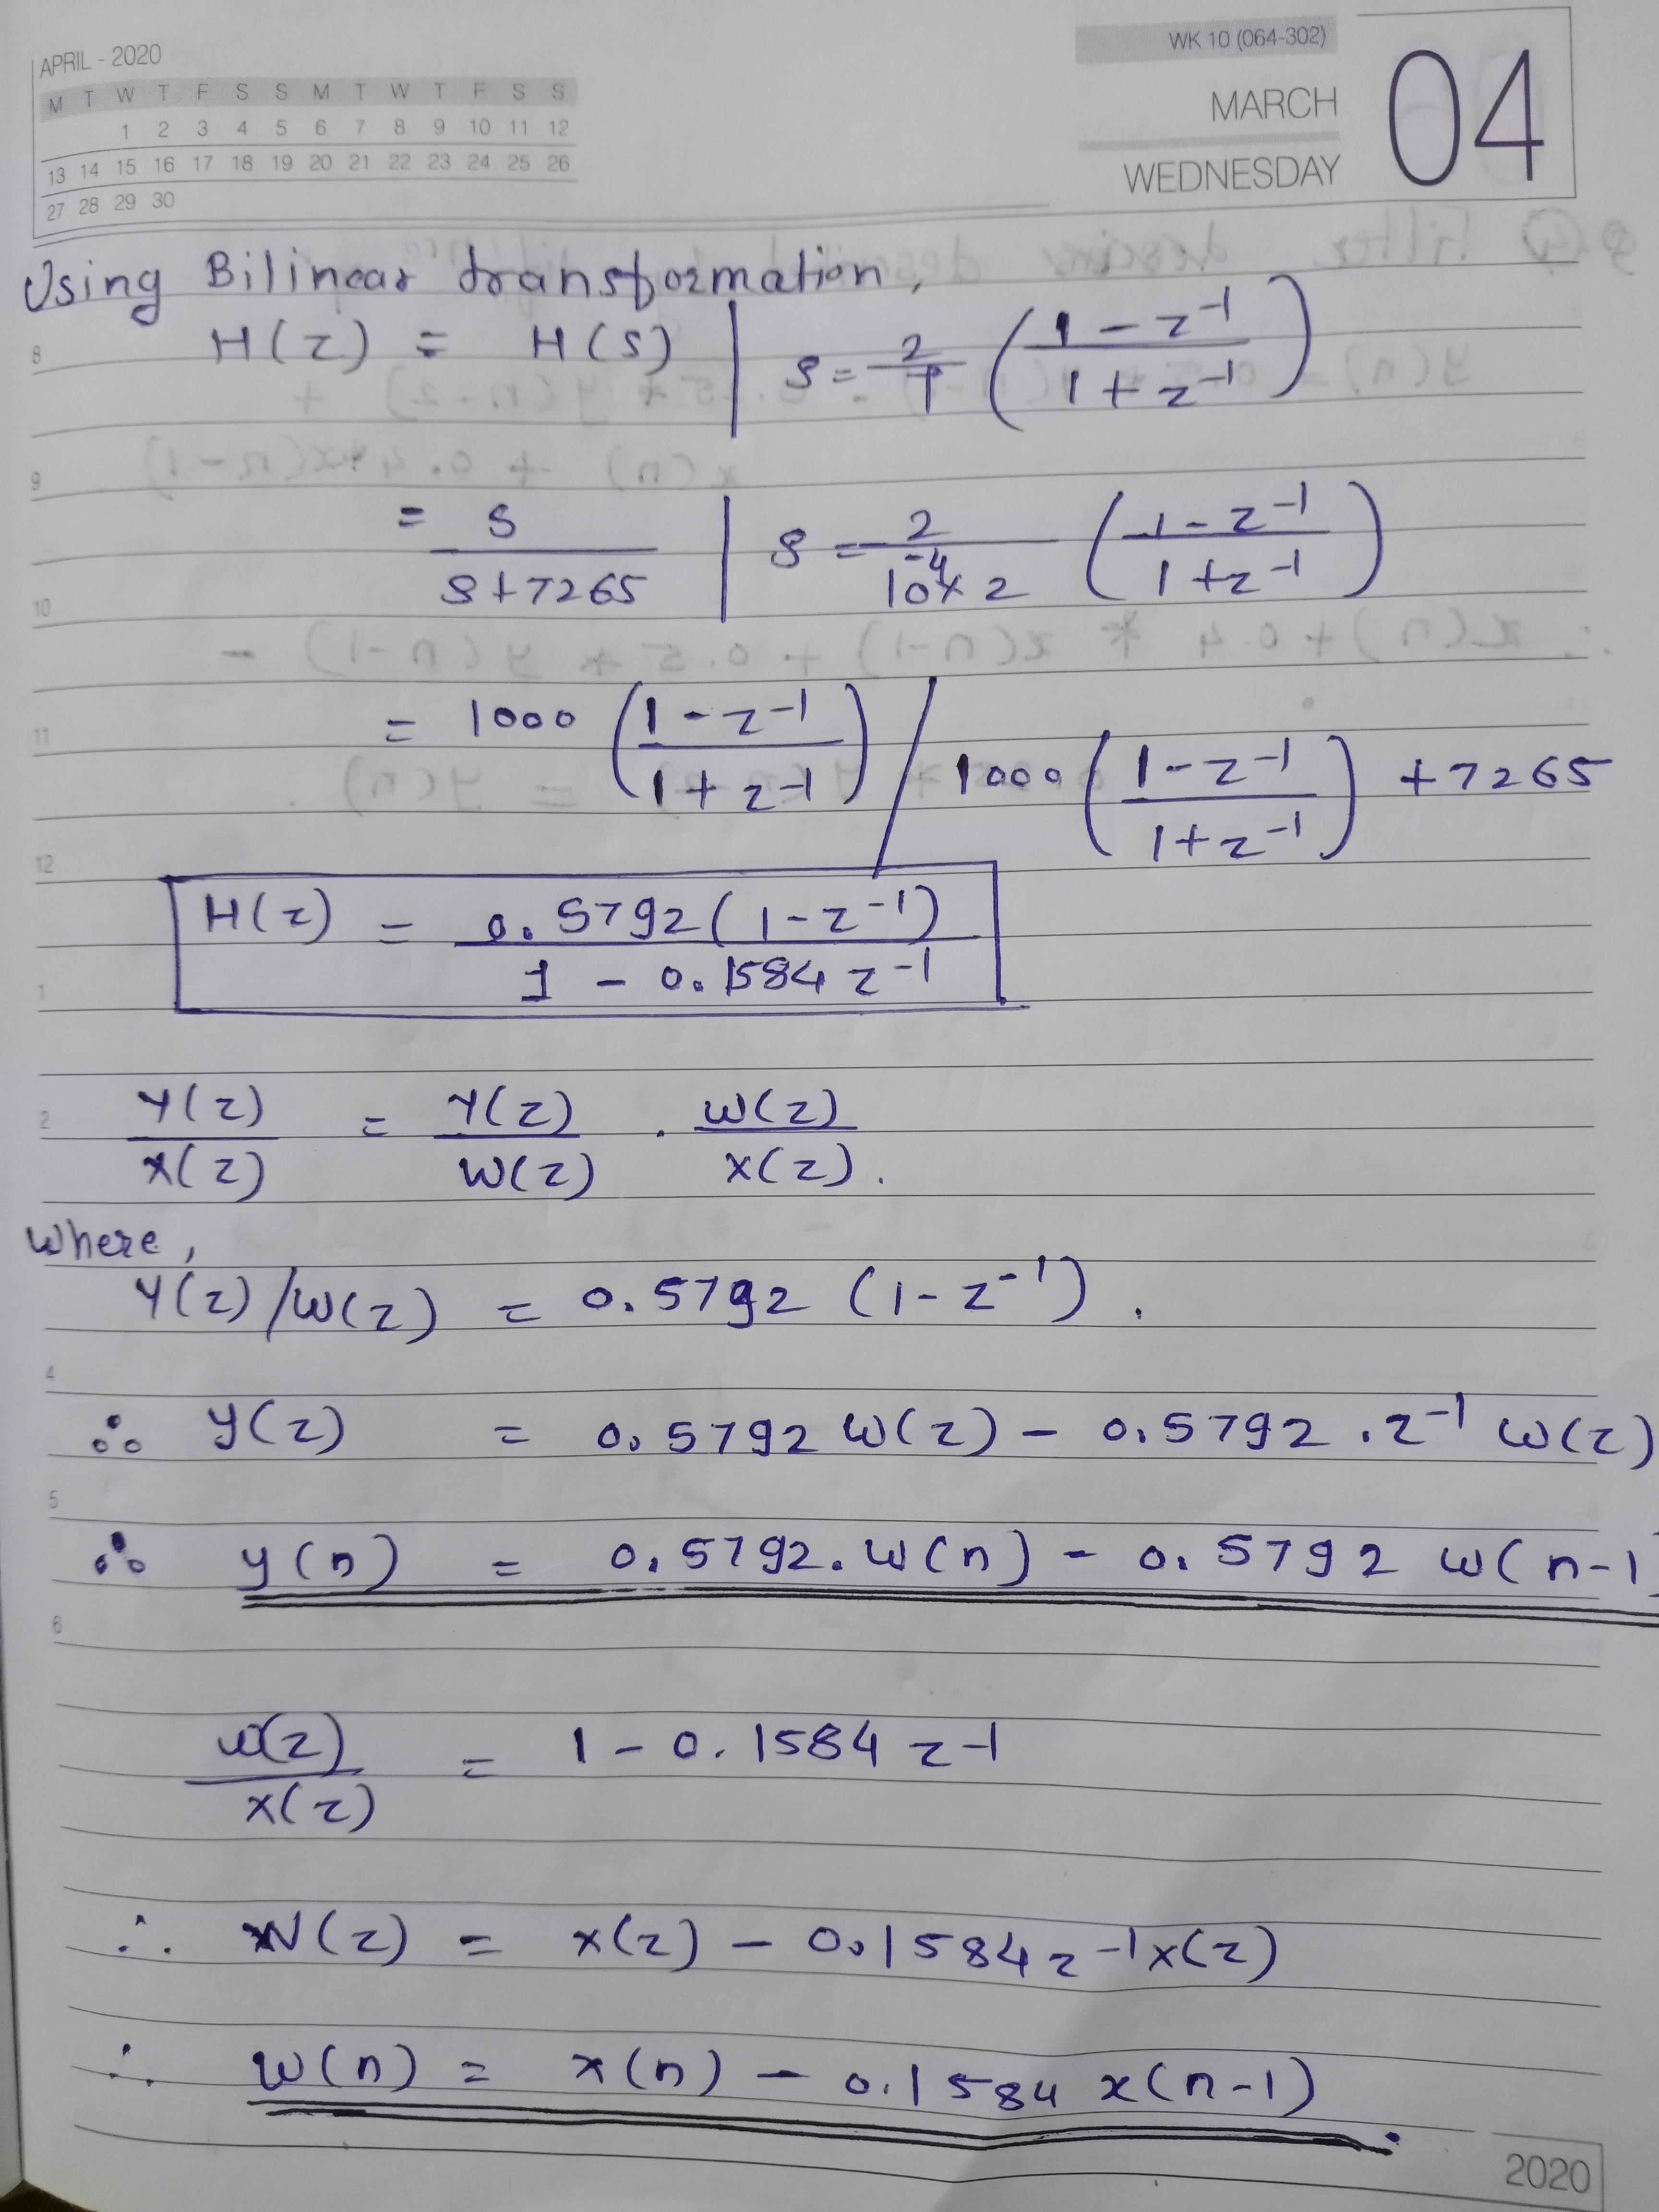 APRIL - 2020
M T W T F S S M T W T F S S
1 2 3 4 5 6 7 8 9 10 11 12
13 14 15 16 17 18 19 20 21 22 23 24 25 26
27 28 29 30
WK 10 (064-302)
MARCH
WEDNESDAY
04
Using Bilinear transformation,
8 H(z) = H(s) | s = 2/T ( (1 - z^-1) / (1 + z^-1) )
9
= s / (s + 7265) | s = 2 / (10^-4 × 2) ( (1 - z^-1) / (1 + z^-1) )
10
11 = 1000 ( (1 - z^-1) / (1 + z^-1) ) / 1000 ( (1 - z^-1) / (1 + z^-1) ) + 7265
12
H(z) = 0.5792 (1 - z^-1) / (1 - 0.1584 z^-1)
1
2 Y(z) / X(z) = Y(z) / W(z) . W(z) / X(z).
Where,
Y(z)/W(z) = 0.5792 (1 - z^-1).
4
∴ Y(z) = 0.5792 W(z) - 0.5792 . z^-1 W(z)
5
∴ y(n) = 0.5792. W(n) - 0.5792 W(n-1)
6
W(z) / X(z) = 1 - 0.1584 z^-1
∴ W(z) = X(z) - 0.1584 z^-1 X(z)
∴ W(n) = x(n) - 0.1584 x(n-1)
2020